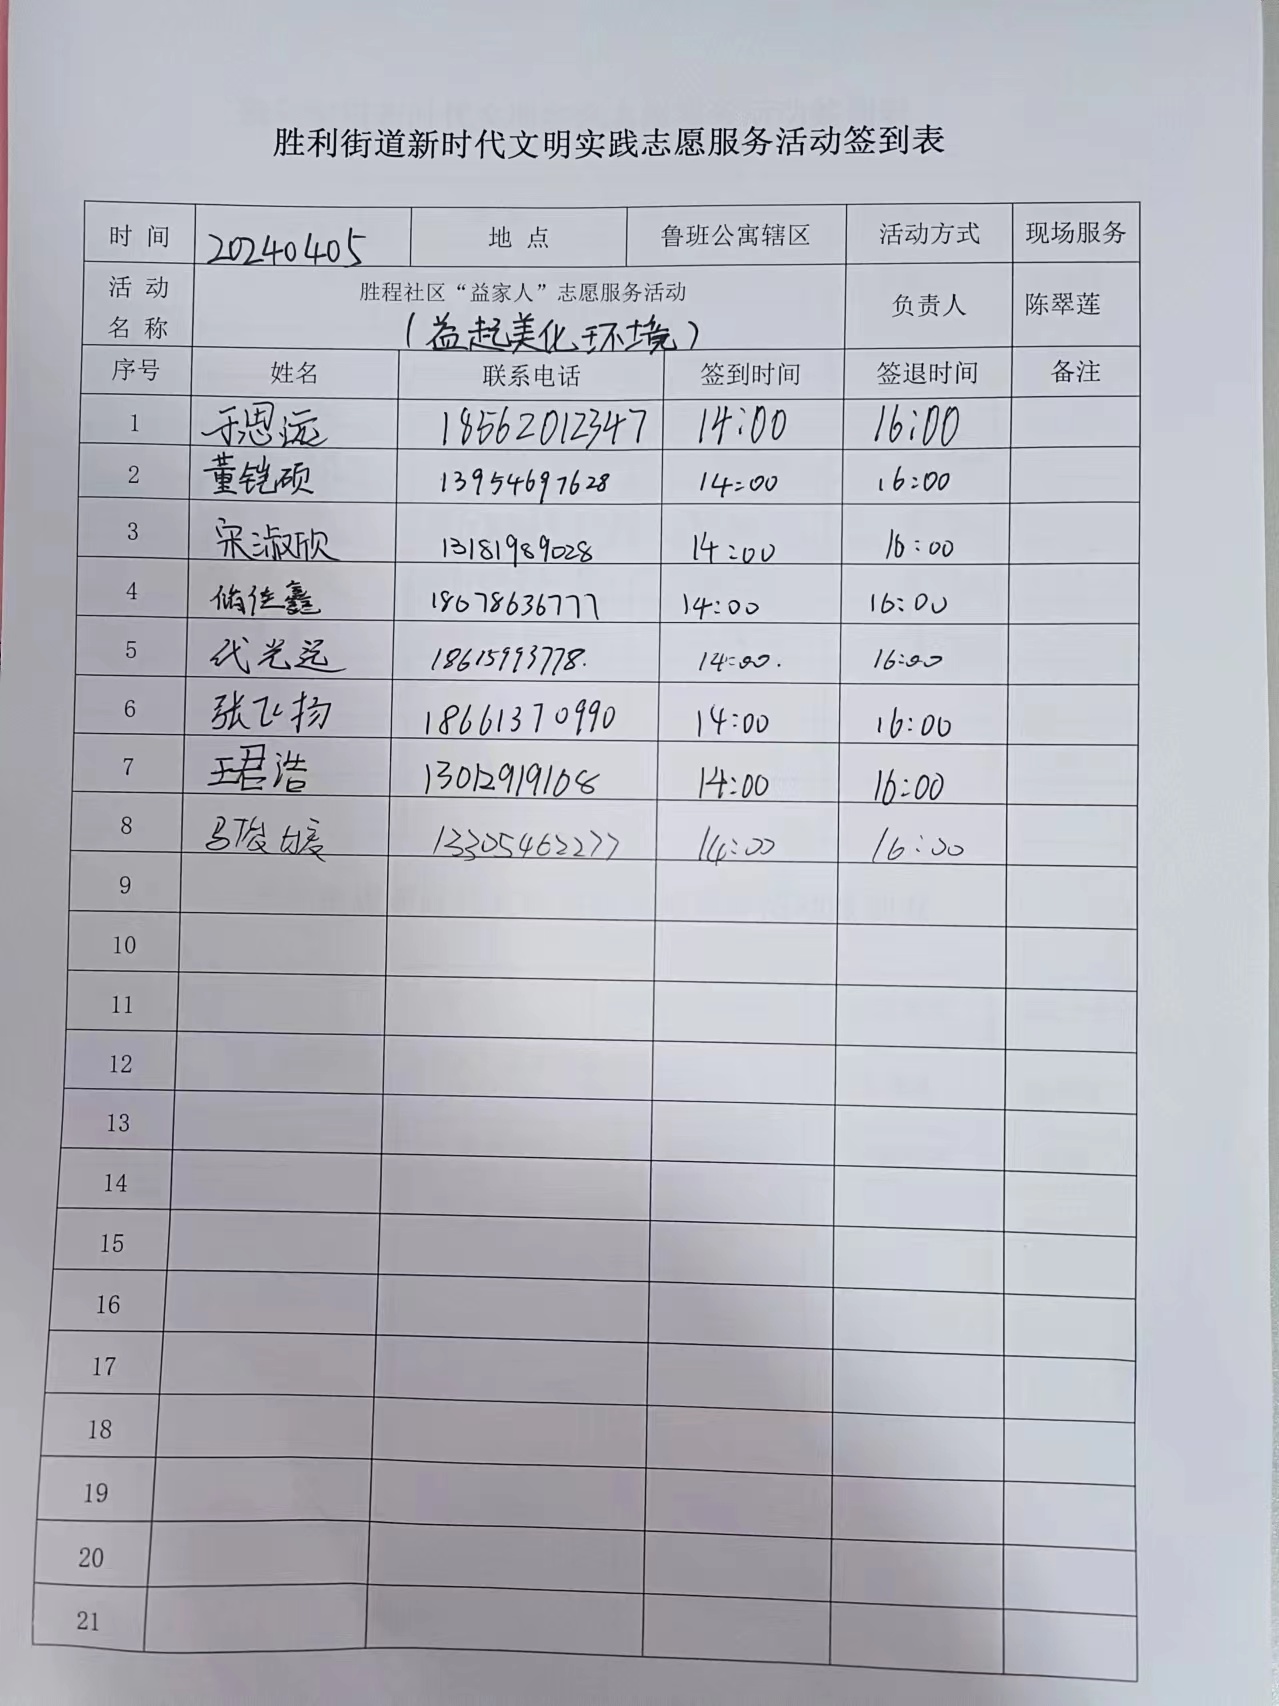 胜利街道新时代文明实践志愿服务活动签到表
时 间 20240405 地 点 鲁班公寓辖区 活动方式 现场服务
活 动 名 称 胜程社区“益家人”志愿服务活动 负责人 陈翠莲
(益起美化环境)
序号 姓名 联系电话 签到时间 签退时间 备注
1 于恩远 18562012347 14:00 16:00
2 董铠硕 13954697628 14:00 16:00
3 宋淑欣 13181989028 14:00 16:00
4 佳鑫 18678636777 14:00 16:00
5 代光远 18615993778. 14:00. 16:00
6 张飞扬 18661370990 14:00 16:00
7 王君浩 13012919108 14:00 16:00
8 马 13305462277 14:00 16:00
9
10
11
12
13
14
15
16
17
18
19
20
21